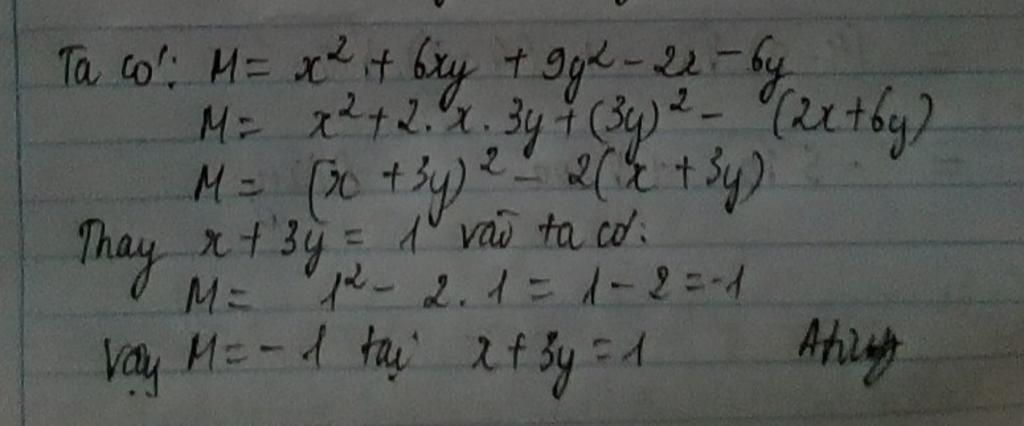 Ta có: M = x² + 6xy + 9y² - 2x - 6y
M = x² + 2. x. 3y + (3y)² - (2x + 6y)
M = (x + 3y)² - 2(x + 3y)
Thay x + 3y = 1 vào ta có:
M = 1² - 2. 1 = 1 - 2 = -1
Vậy M = - 1 tại x + 3y = 1